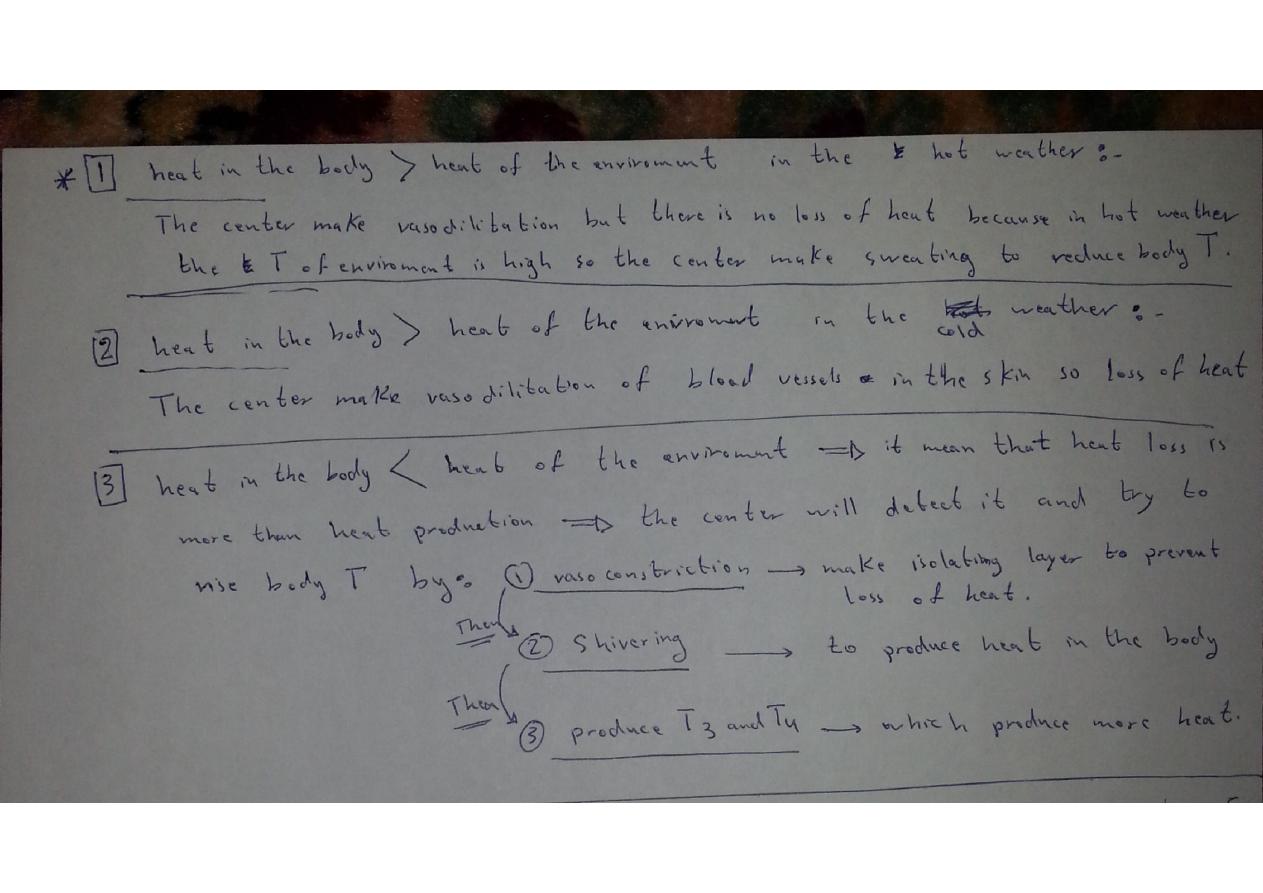 * 1 heat in the body > heat of the enviroment in the hot weather :-
The center make vasodilitation but there is no loss of heat because in hot weather
the T of enviroment is high so the center make sweating to reduce body T.
2 heat in the body > heat of the enviroment in the cold weather :-
The center make vasodilitation of blood vessels in the skin so loss of heat
3 heat in the body < heat of the enviroment ⇒ it mean that heat loss is
more than heat production ⇒ the center will detect it and try to
rise body T by: ① vasoconstriction → make isolating layer to prevent
loss of heat.
Then ② Shivering → to produce heat in the body
Then ③ produce T3 and T4 → which produce more heat.